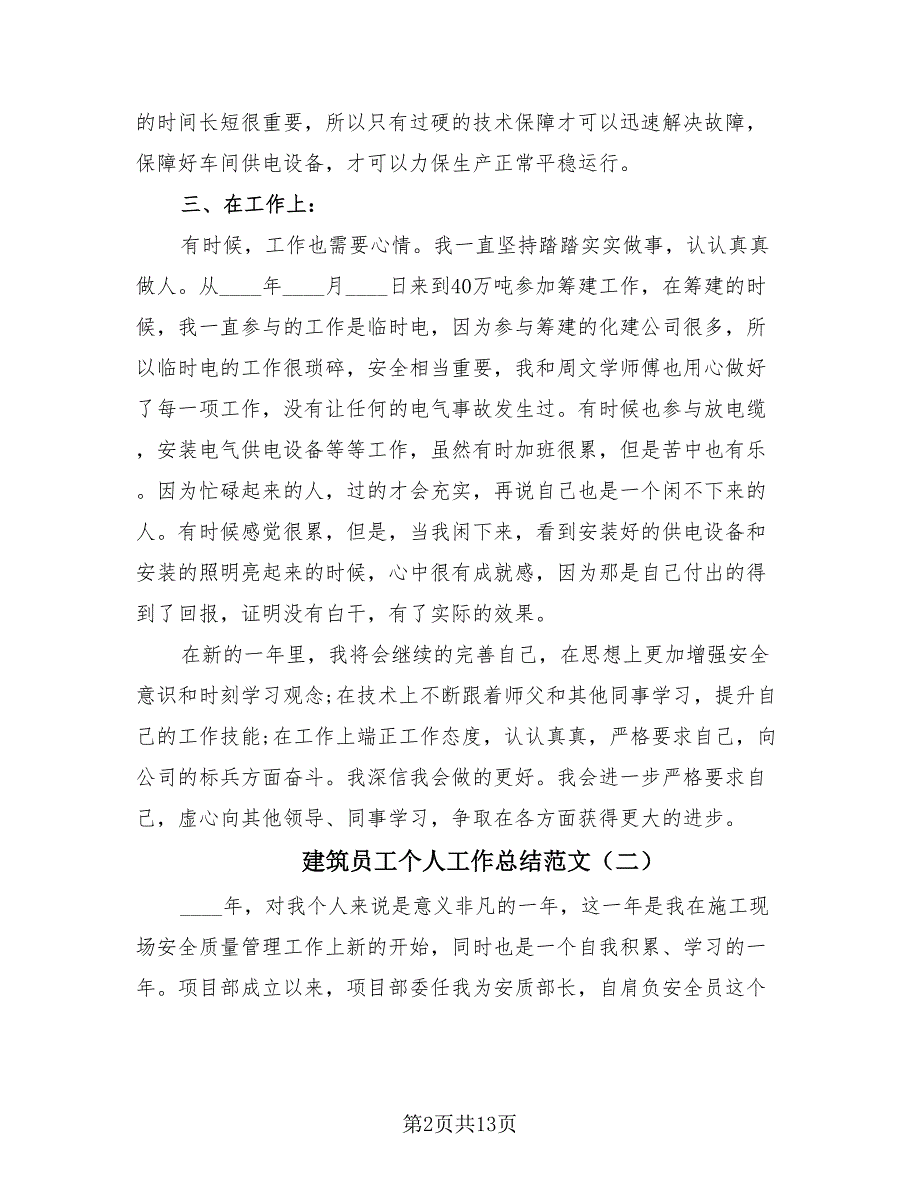 的时间长短很重要，所以只有过硬的技术保障才可以迅速解决故障，
保障好车间供电设备，才可以力保生产正常平稳运行。
三、在工作上：
有时候，工作也需要心情。我一直坚持踏踏实实做事，认认真真
做人。从____年____月____日来到40万吨参加筹建工作，在筹建的时
候，我一直参与的工作是临时电，因为参与筹建的化建公司很多，所
以临时电的工作很琐碎，安全相当重要，我和周文学师傅也用心做好
了每一项工作，没有让任何的电气事故发生过。有时候也参与放电缆
，安装电气供电设备等等工作，虽然有时加班很累，但是苦中也有乐
。因为忙碌起来的人，过的才会充实，再说自己也是一个闲不下来的
人。有时候感觉很累，但是，当我闲下来，看到安装好的供电设备和
安装的照明亮起来的时候，心中很有成就感，因为那是自己付出的得
到了回报，证明没有白干，有了实际的效果。
在新的一年里，我将会继续的完善自己，在思想上更加增强安全
意识和时刻学习观念;在技术上不断跟着师父和其他同事学习，提升自
己的工作技能;在工作上端正工作态度，认认真真，严格要求自己，向
公司的标兵方面奋斗。我深信我会做的更好。我会进一步严格要求自
己，虚心向其他领导、同事学习，争取在各方面获得更大的进步。
建筑员工个人工作总结范文（二）
____年，对我个人来说是意义非凡的一年，这一年是我在施工现
场安全质量管理工作上新的开始，同时也是一个自我积累、学习的一
年。项目部成立以来，项目部委任我为安质部长，自肩负安全员这个
第2页共13页